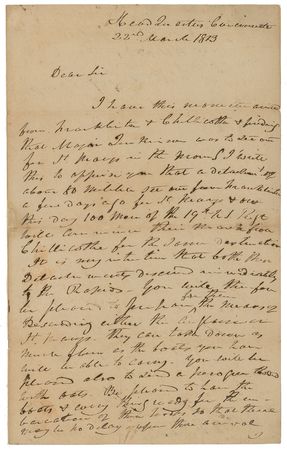 Head Quarters Cincinnati
22nd March 1813
Dear Sir
I have this moment arrived
from Franklinton & Chillicothe & finding
that Major Jenkinson was to set out
for St Marys in the morng I write
this to apprise you that a detachmt of
about 80 militia set out from Franklinton
a few days ago for St Marys & on
this day 100 Men of the 19th U.S. Regt
will commence their March from
Chillicothe for the same destination
It is my intention that both these
Detachments descend immediately
to the Rapids. You will therefore
be pleased to prepare for them the means of
Descending either the Auglaize or
St Marys. they can both down as
much flour as the boats you have
will be able to carry. You will be
pleased also to send a
with oats. Be pleased to have the
boats & every thing ready for the em-
barcation of these troops so that there
may be no delay upon their arrival